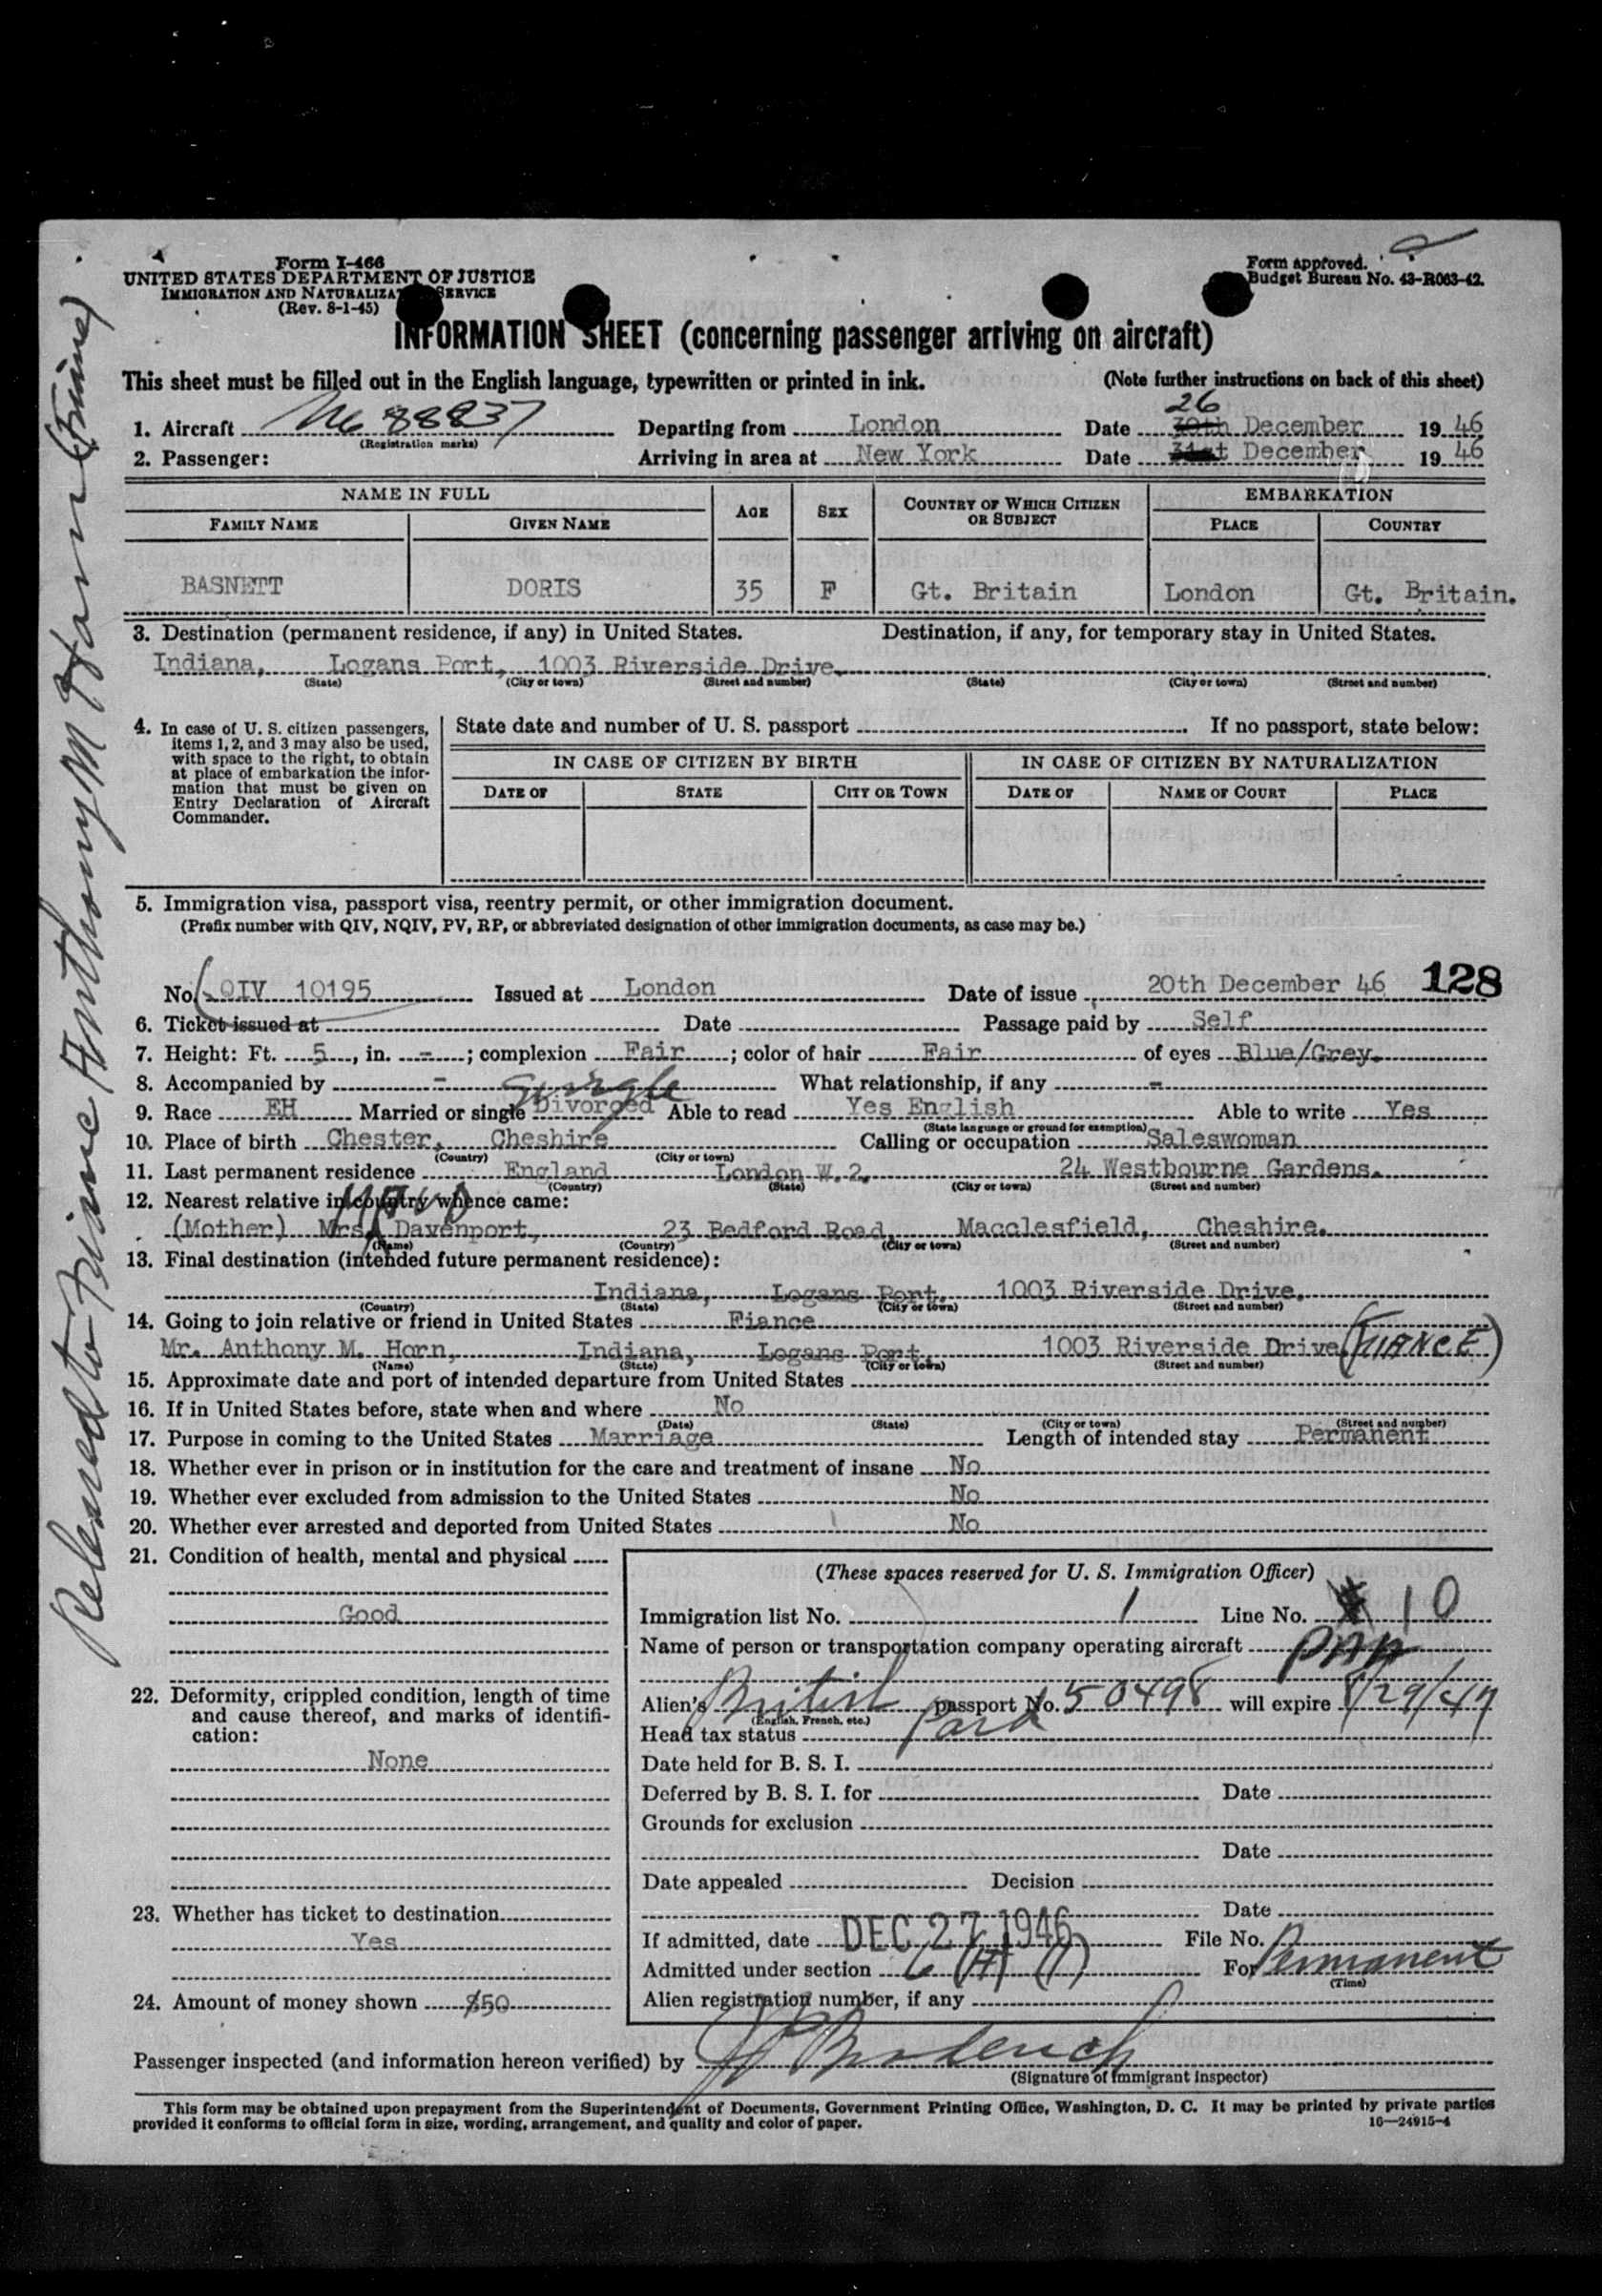 Form I-466
UNITED STATES DEPARTMENT OF JUSTICE
IMMIGRATION AND NATURALIZATION SERVICE
(Rev. 8-1-45)
Form approved.
Budget Bureau No. 43-R063-42.
INFORMATION SHEET (concerning passenger arriving on aircraft)
This sheet must be filled out in the English language, typewritten or printed in ink. (Note further instructions on back of this sheet)
26
1. Aircraft NC 88837 Departing from London Date 30th December 19 46
(Registration marks)
2. Passenger: Arriving in area at New York Date 31st December 19 46
NAME IN FULL AGE SEX COUNTRY OF WHICH CITIZEN OR SUBJECT EMBARKATION
FAMILY NAME GIVEN NAME PLACE COUNTRY
BASNETT DORIS 35 F Gt. Britain London Gt. Britain.
3. Destination (permanent residence, if any) in United States. Destination, if any, for temporary stay in United States.
Indiana, Logans Port, 1003 Riverside Drive.
(State) (City or town) (Street and number) (State) (City or town) (Street and number)
4. In case of U. S. citizen passengers, items 1, 2, and 3 may also be used, with space to the right, to obtain at place of embarkation the information that must be given on Entry Declaration of Aircraft Commander.
State date and number of U. S. passport If no passport, state below:
IN CASE OF CITIZEN BY BIRTH IN CASE OF CITIZEN BY NATURALIZATION
DATE OF STATE CITY OR TOWN DATE OF NAME OF COURT PLACE
5. Immigration visa, passport visa, reentry permit, or other immigration document.
(Prefix number with QIV, NQIV, PV, RP, or abbreviated designation of other immigration documents, as case may be.)
No. QIV 10195 Issued at London Date of issue 20th December 46 128
6. Ticket issued at Date Passage paid by Self
7. Height: Ft. 5, in. -; complexion Fair; color of hair Fair of eyes Blue/Grey.
8. Accompanied by - What relationship, if any -
Single
9. Race EH Married or single Divorced Able to read Yes English Able to write Yes
(State language or ground for exemption)
10. Place of birth Chester, Cheshire Calling or occupation Saleswoman
(Country) (City or town)
11. Last permanent residence England London W.2. 24 Westbourne Gardens.
(Country) (State) (City or town) (Street and number)
12. Nearest relative in country whence came:
(Mother) Mrs. Davenport, 23 Bedford Road, Macclesfield, Cheshire.
(Name) (Country) (City or town) (Street and number)
13. Final destination (intended future permanent residence):
Indiana, Logans Port. 1003 Riverside Drive.
(Country) (State) (City or town) (Street and number)
14. Going to join relative or friend in United States Fiance
Mr. Anthony M. Horn, Indiana, Logans Port, 1003 Riverside Drive. (FIANCE)
(Name) (State) (City or town) (Street and number)
15. Approximate date and port of intended departure from United States
16. If in United States before, state when and where No
(Date) (State) (City or town) (Street and number)
17. Purpose in coming to the United States Marriage Length of intended stay Permanent
18. Whether ever in prison or in institution for the care and treatment of insane No
19. Whether ever excluded from admission to the United States No
20. Whether ever arrested and deported from United States No
21. Condition of health, mental and physical
Good
22. Deformity, crippled condition, length of time and cause thereof, and marks of identification:
None
23. Whether has ticket to destination
Yes
24. Amount of money shown $50
(These spaces reserved for U. S. Immigration Officer)
Immigration list No. 1 Line No. 10
Name of person or transportation company operating aircraft PAA
Alien's British passport No. 50498 will expire 8/29/47
(English, French, etc.)
Head tax status Paid
Date held for B. S. I.
Deferred by B. S. I. for Date
Grounds for exclusion
Date
Date appealed Decision
Date
If admitted, date DEC 27 1946 File No.
Admitted under section 6 (A) (1) For Permanent
(Time)
Alien registration number, if any
Passenger inspected (and information hereon verified) by
(Signature of Immigrant Inspector)
This form may be obtained upon prepayment from the Superintendent of Documents, Government Printing Office, Washington, D. C. It may be printed by private parties
provided it conforms to official form in size, wording, arrangement, and quality and color of paper. 16—24915-4
Released to Fiance Anthony M Horn (Fiance)